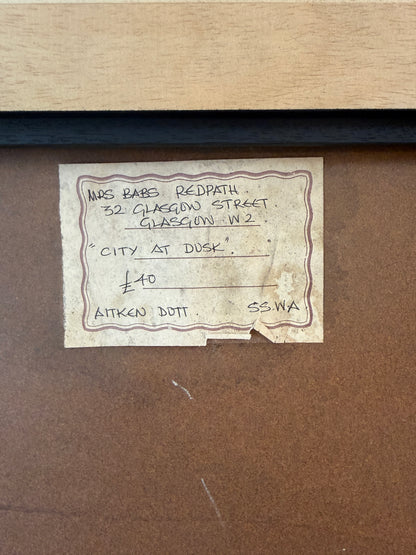 MRS BABS REDPATH.
32 GLASGOW STREET
GLASGOW W2
"CITY AT DUSK".
£40
AITKEN DOTT. SS.WA